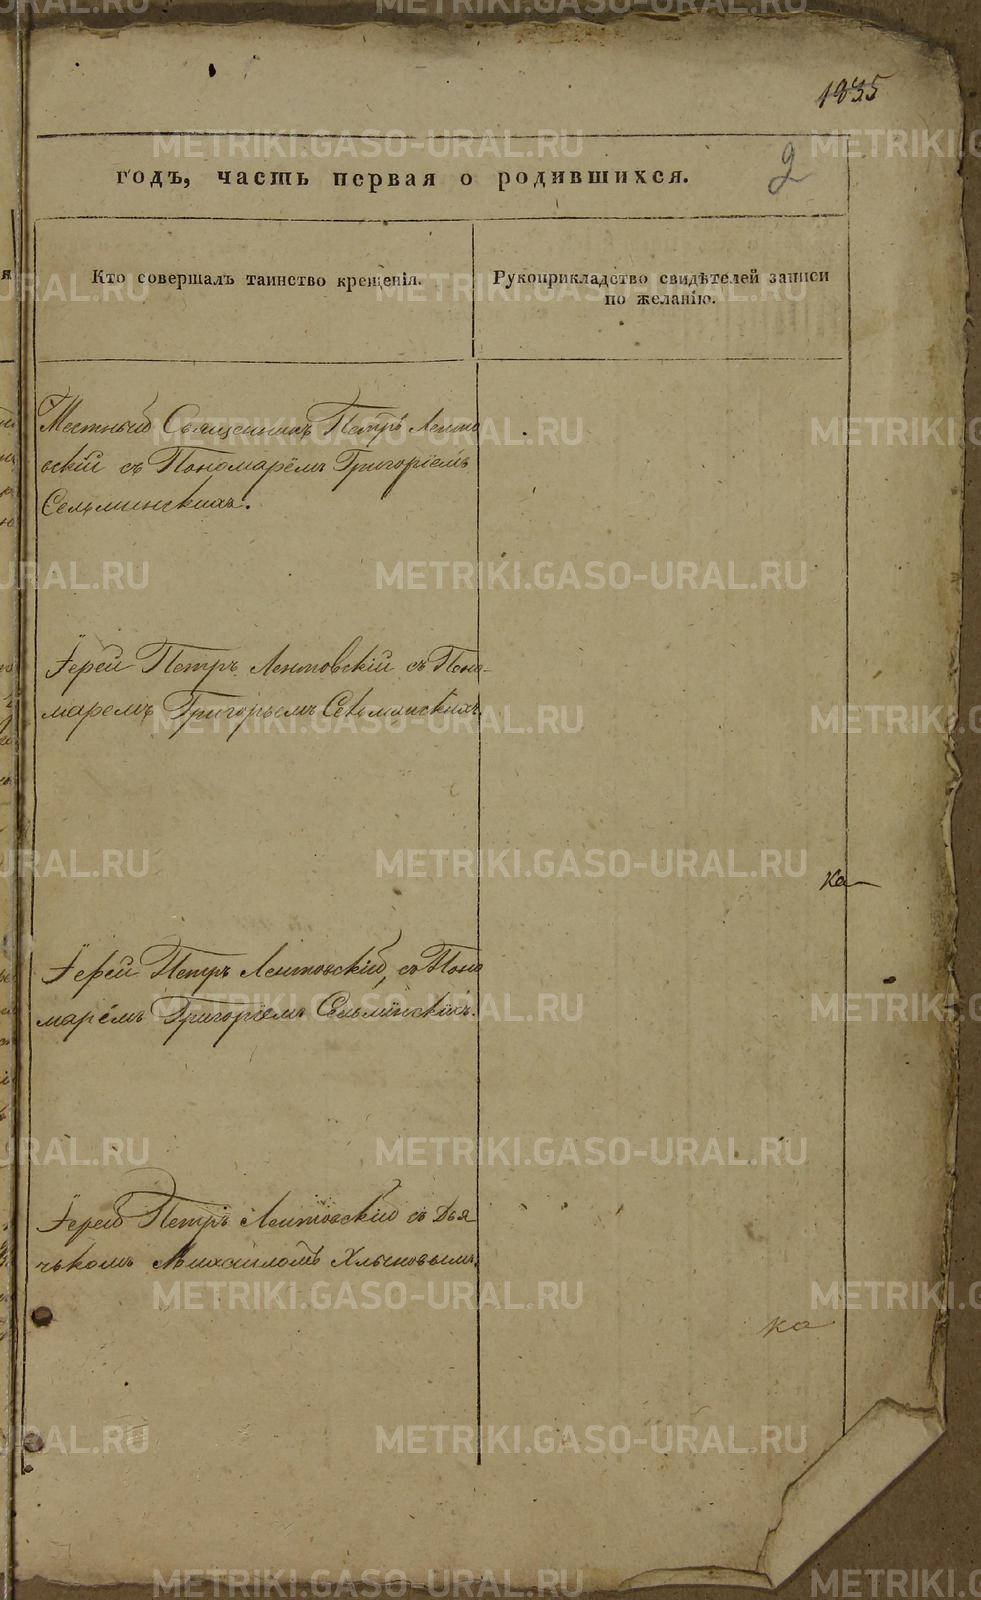 1835
2
годъ, часть первая о родившихся.
Кто совершалъ таинство крещенія.
Рукоприкладство свидѣтелей записи
по желанію.
Местный Священникъ Петръ Ленто
вскій съ Пономарёмъ Григоріемъ
Сельминскихъ.
Іерей Петръ Лентовскій съ Поно-
маремъ Григорьемъ Сельминскихъ.
ка
Іерей Петръ Лентовскій, съ Поно
марёмъ Григоріемъ Сельминскихъ.
Іерей Петръ Лентовскій съ Дья
чькомъ Михаиломъ Хлыновымъ.
ка
METRIKI.GASO-URAL.RU